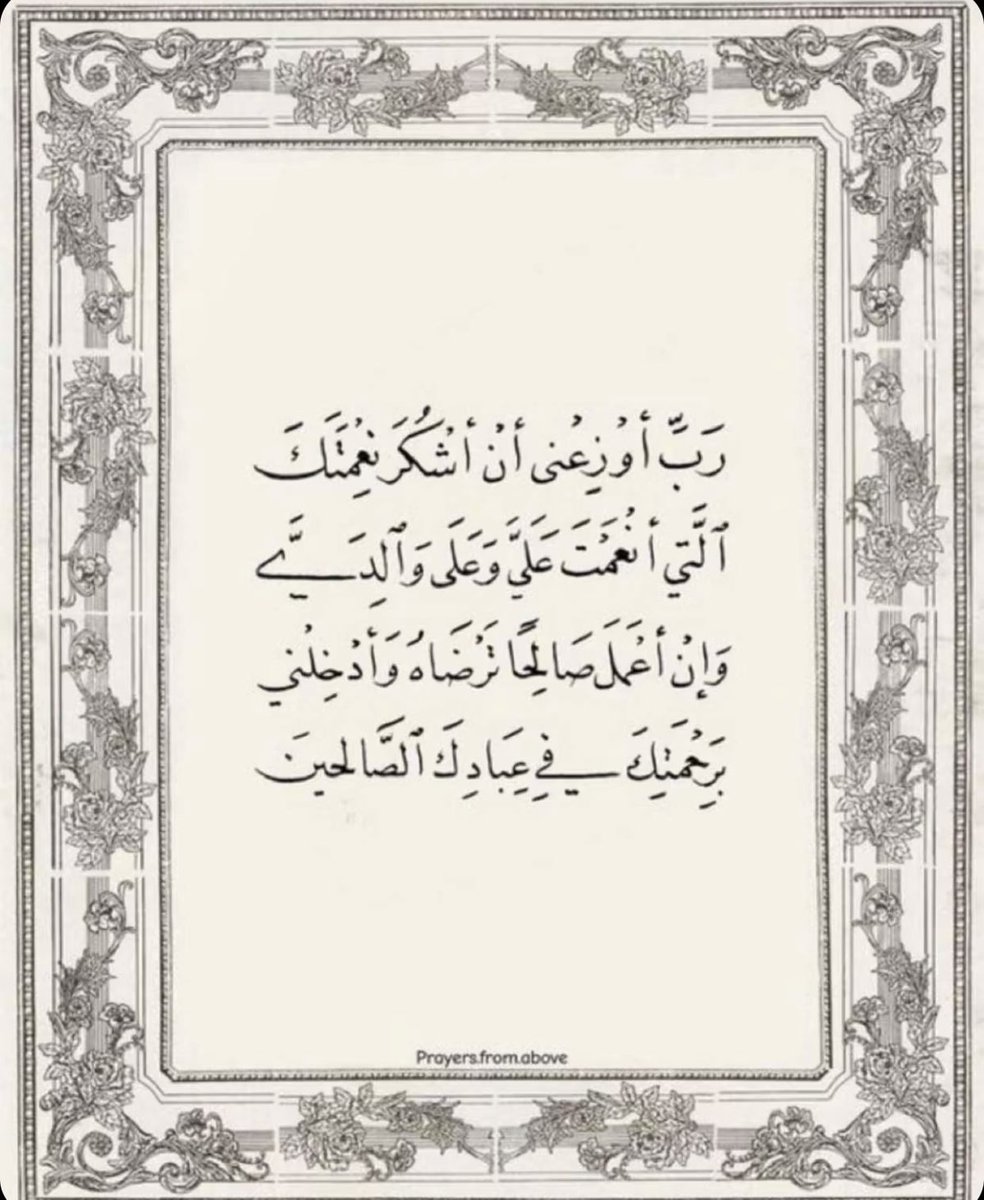 رَبِّ أَوْزِعْنى أَنْ أَشْكُرَ نِعْمَتَكَ
ٱلَّتي أَنْعَمْتَ عَلَيَّ وَعَلَى وَٱلِدَيَّ
وَإنْ أَعْمَلَ صَالِحًا تَرْضَاهُ وَأَدْخِلْني
بِرَحْمَتِكَ في عِبَادِكَ ٱلصَّالحينَ
Prayers.from.above